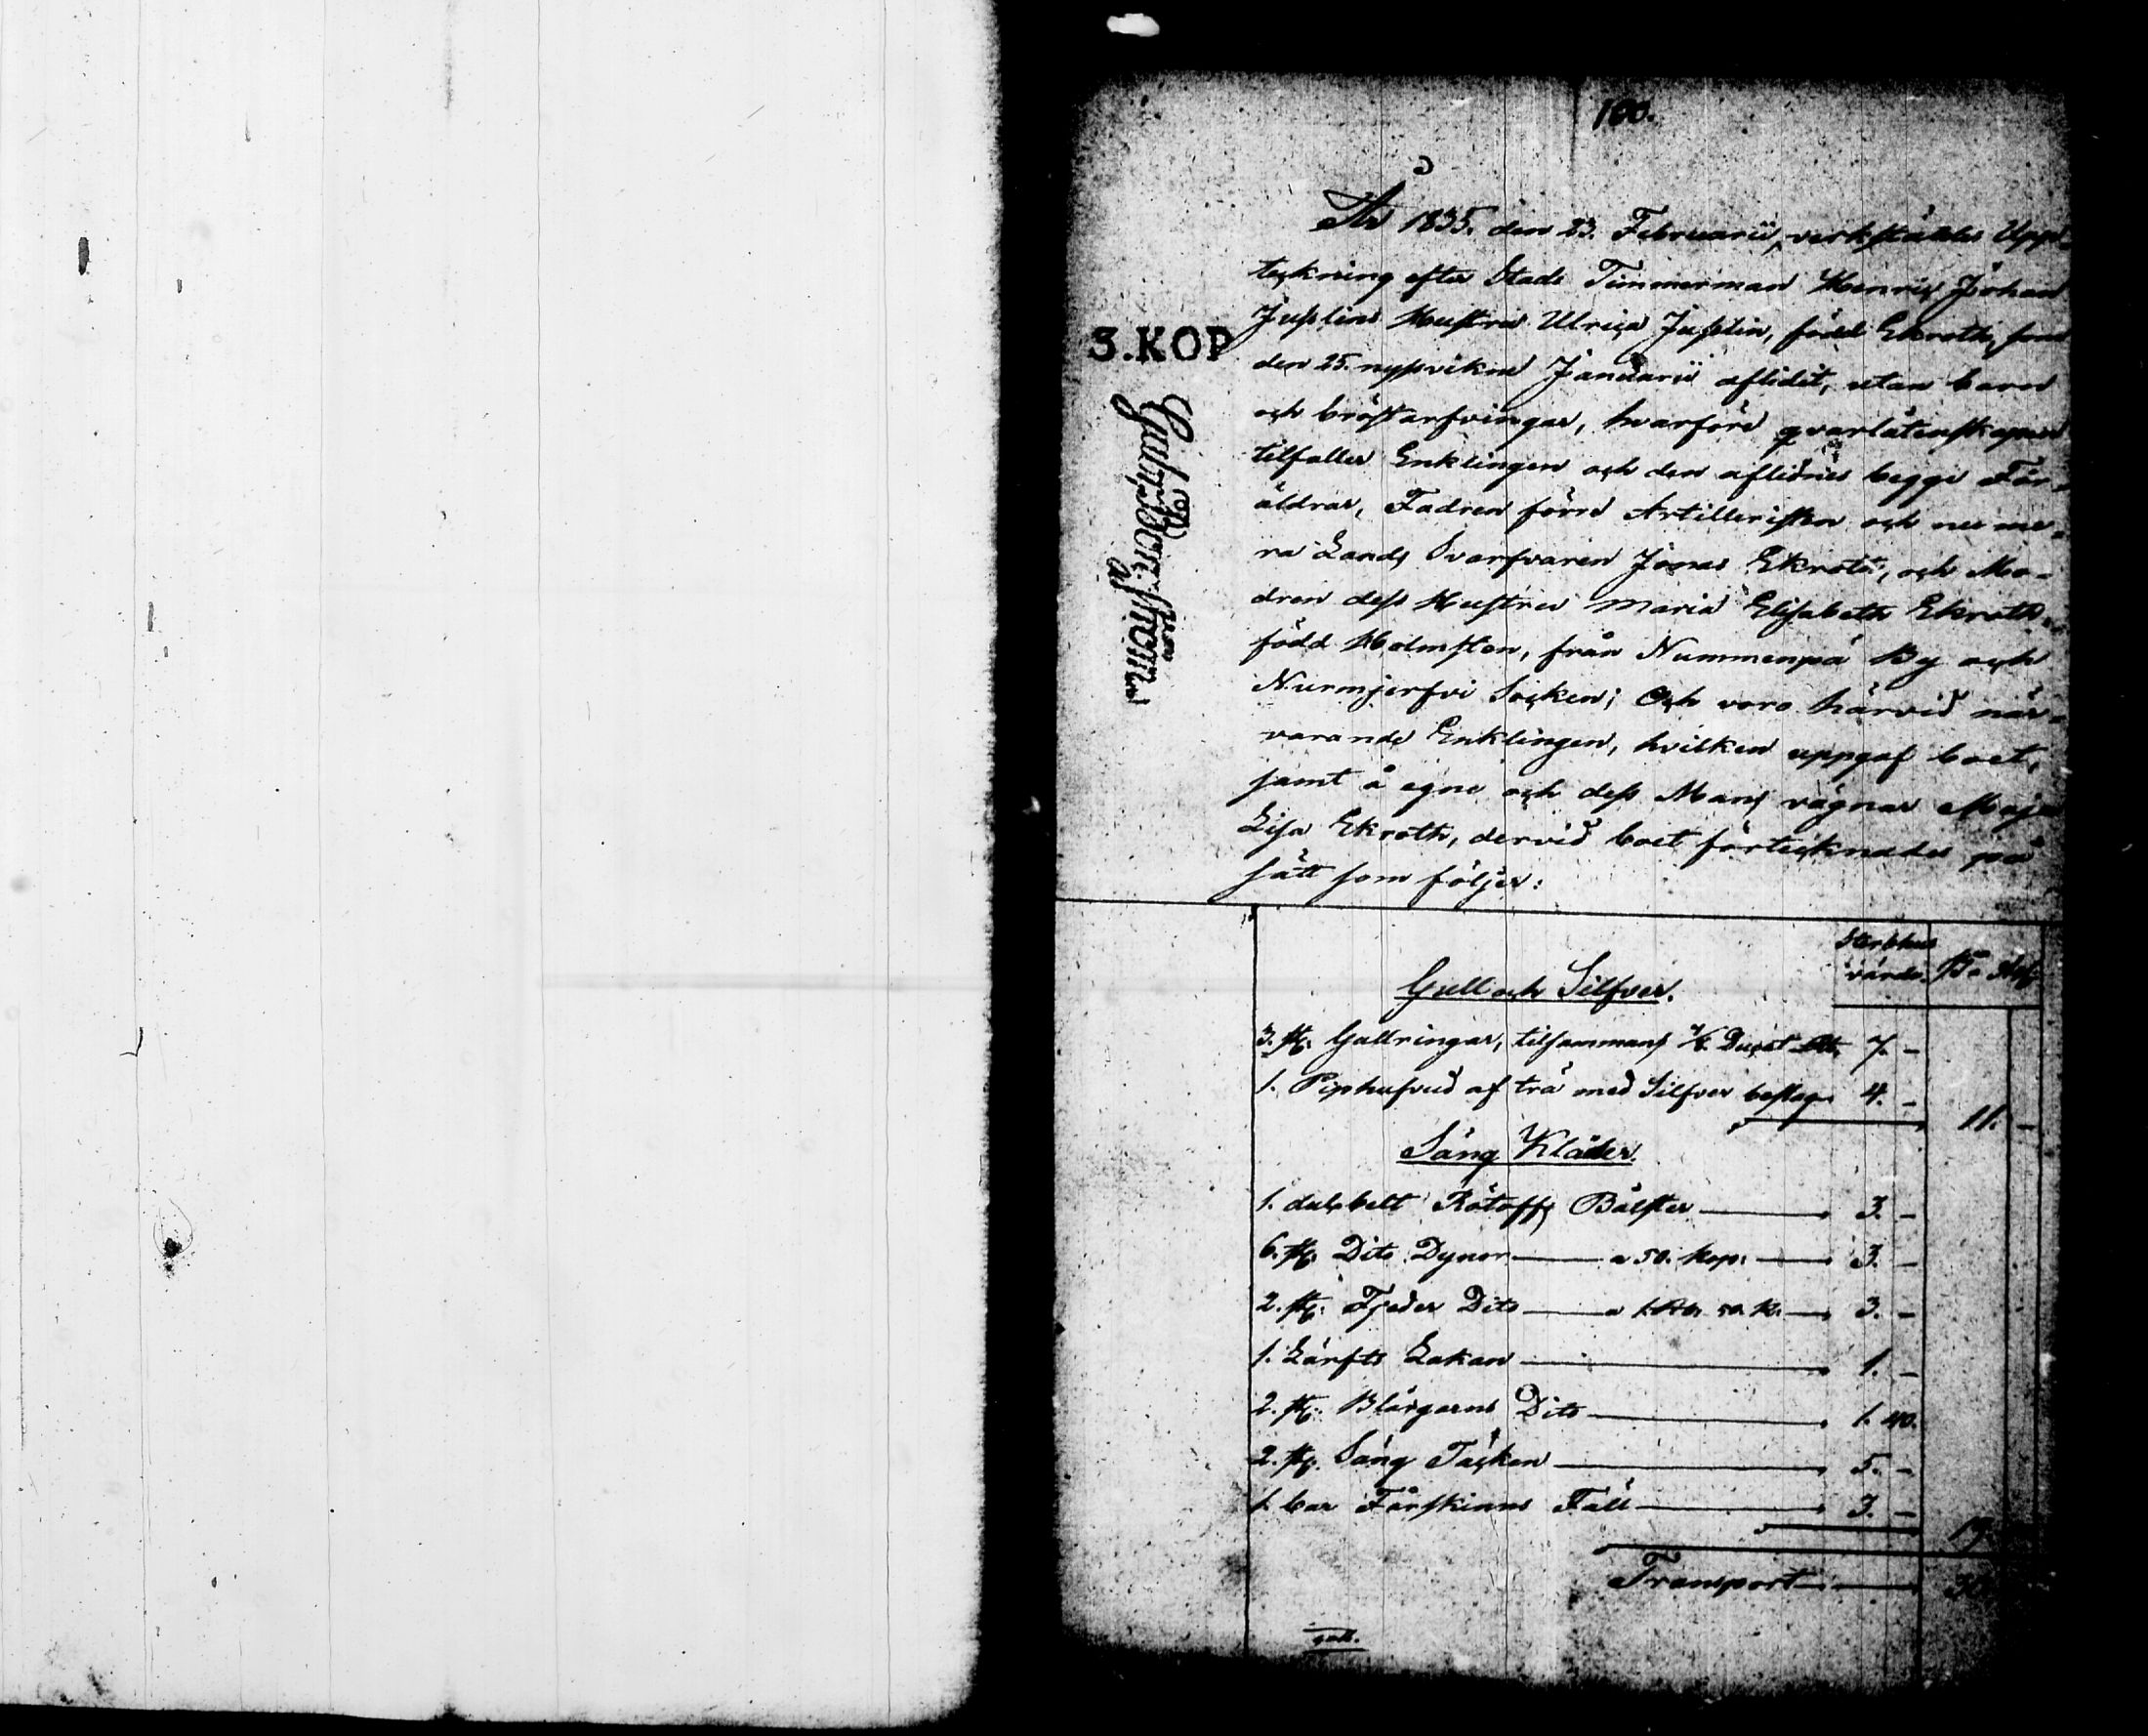 100.
År 1835. den 23. Februarii, verkställdes Upp-
teckning efter Stads Timmerman Henric Johan
Juslins Hustru Ulrica Juslin, född Ekroth, som
den 25. nysvikne Januarii aflidit, utan barn
och bröstarfvingar, hvarföre qvarlåtenskapen
tilfaller Enklingen och den aflednes begge För-
äldrar, Fadren förre Artilleristen och nu me-
ra Lands Svarfvaren Jonas Ekroth, och Mo-
dren dess Hustru Maria Elisabeth Ekroth,
född Holmsten, från Nummenpä By och
Nurmjerfvi Socken; Och voro härvid när-
varande Enklingen, hvilken uppgaf boet,
samt å egne och dess Mans vägnar Maja
Lisa Ekroth, dervid boet förtecknades på
sätt som följer:
3. KOP
Sterbhus
värde. B:o Ass
Gull och Silfver.
3. st. Gullringar, tilsammans Ducat 7. -
1. Piphufvud af trä med Silfver beslag 4. - 11. -
Säng Kläder.
1. dubbelt Bolster 3. -
6. st. Dito Dynor a 50. kop. 3. -
2. st. Fjeder Dito a 1 Rb. 50. k. 3. -
1. Lärfts Lakan 1. -
2. st. Blårgarns Dito 1. 40.
2. st. Säng Täcken 5. -
1. bar Fårskinns Fäll 3. -
19.
Transport 30